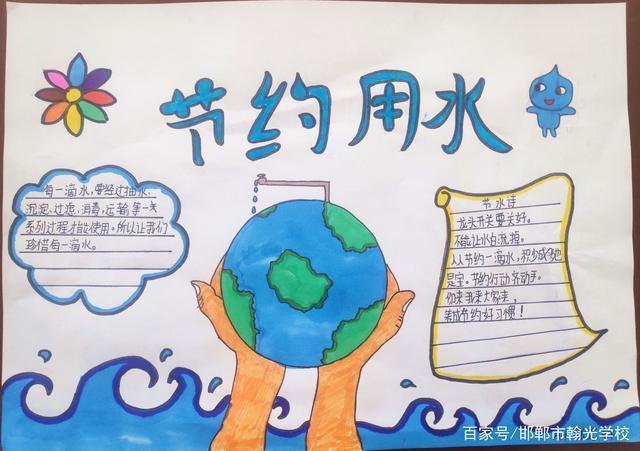 节约用水
每一滴水,要经过抽水、
沉淀、过滤、消毒、运输等一
系列过程才能使用。所以让我们
珍惜每一滴水。
节水谣
龙头开关要关好。
不能让水白流掉。
人人节约一滴水,积少成多也
是宝。节约行动齐动手。
你来我来大家来,
养成节约好习惯!
百家号/邯郸市翰光学校